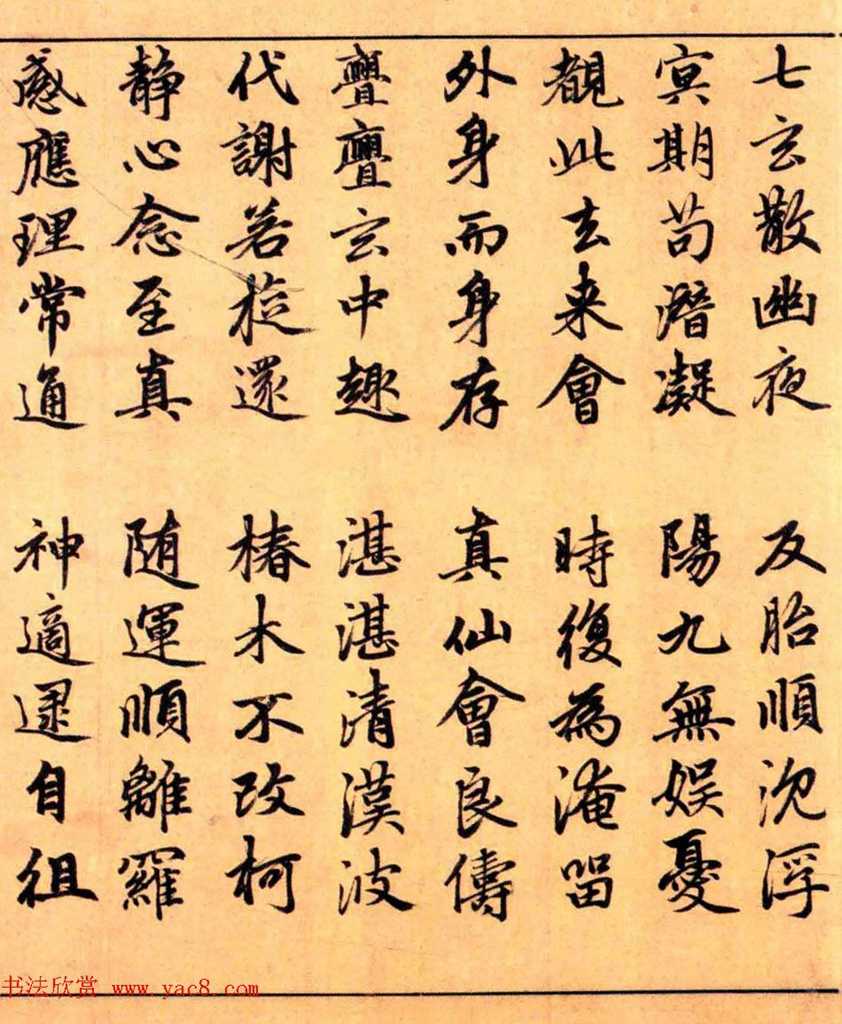 七玄散幽夜 反胎順沈浮
冥期苟潛凝 陽九無娯憂
覩此去来會 時復為淹留
外身而身存 真仙會良儔
亹亹玄中趣 湛湛清漢波
代謝若旋還 椿木不改柯
静心念至真 随運順離羅
感應理常通 神適逮自徂
书法欣赏 www.yac8.com